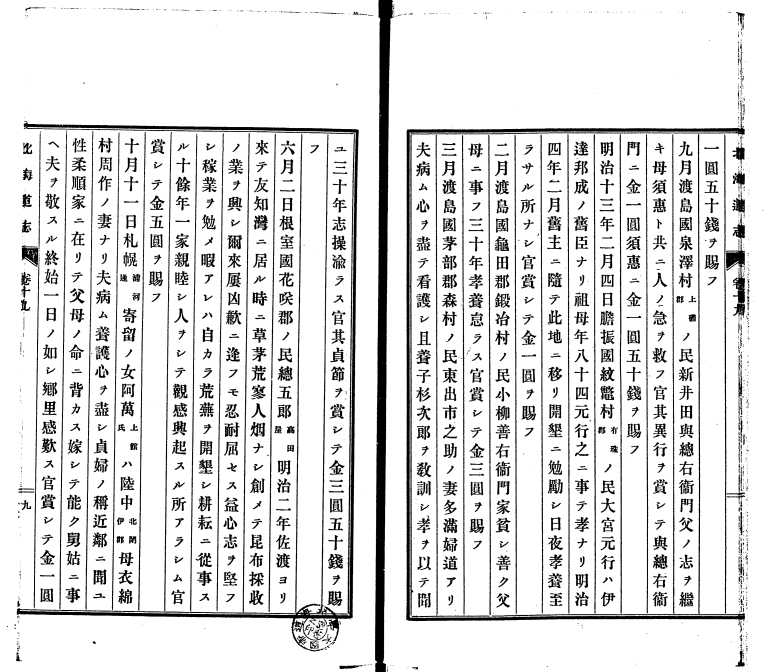 一圓五十錢ヲ賜フ
九月渡島國泉澤村上磯郡ノ民新井田與總右衞門父ノ志ヲ繼
キ母須惠ト共ニ人ノ急ヲ救フ官其異行ヲ賞シテ與總右衞
門ニ金一圓須惠ニ金一圓五十錢ヲ賜フ
明治十三年二月四日膽振國紋鼈村有珠郡ノ民大宮元行ハ伊
達邦成ノ舊臣ナリ祖母年八十四元行之ニ事テ孝ナリ明治
四年二月舊主ニ隨テ此地ニ移リ開墾ニ勉勵シ日夜孝養至
ラサル所ナシ官賞シテ金一圓ヲ賜フ
二月渡島國龜田郡鍛冶村ノ民小柳善右衞門家貧シ善ク父
母ニ事フ三十年孝養怠ラス官賞シテ金三圓ヲ賜フ
三月渡島國茅部郡森村ノ民東出市之助ノ妻多滿婦道アリ
夫病ム心ヲ盡テ看護シ且養子杉次郎ヲ敎訓シ孝ヲ以テ聞
北海道志
卷十九
ユ三十年志操渝ラス官其貞節ヲ賞シテ金三圓五十錢ヲ賜
フ
六月二日根室國花咲郡ノ民總五郎高田屋明治二年佐渡ヨリ
來テ友知灣ニ居ル時ニ草茅荒寥人烟ナシ創メテ昆布採收
ノ業ヲ興シ爾來屢凶歉ニ逢フモ忍耐屈セス益心志ヲ堅フ
シ稼業ヲ勉メ暇アレハ自カラ荒蕪ヲ開墾シ耕耘ニ從事ス
ル十餘年一家親睦シ人ヲシテ觀感興起スル所アラシム官
賞シテ金五圓ヲ賜フ
十月十一日札幌浦河通寄留ノ女阿萬上館氏ハ陸中北閉伊郡母衣綿
村周作ノ妻ナリ夫病ム養護心ヲ盡シ貞婦ノ稱近鄰ニ聞ユ
性柔順家ニ在リテ父母ノ命ニ背カス嫁シテ能ク舅姑ニ事
ヘ夫ヲ敬スル終始一日ノ如シ鄕里感歎ス官賞シテ金一圓
北海道志
卷十九
九